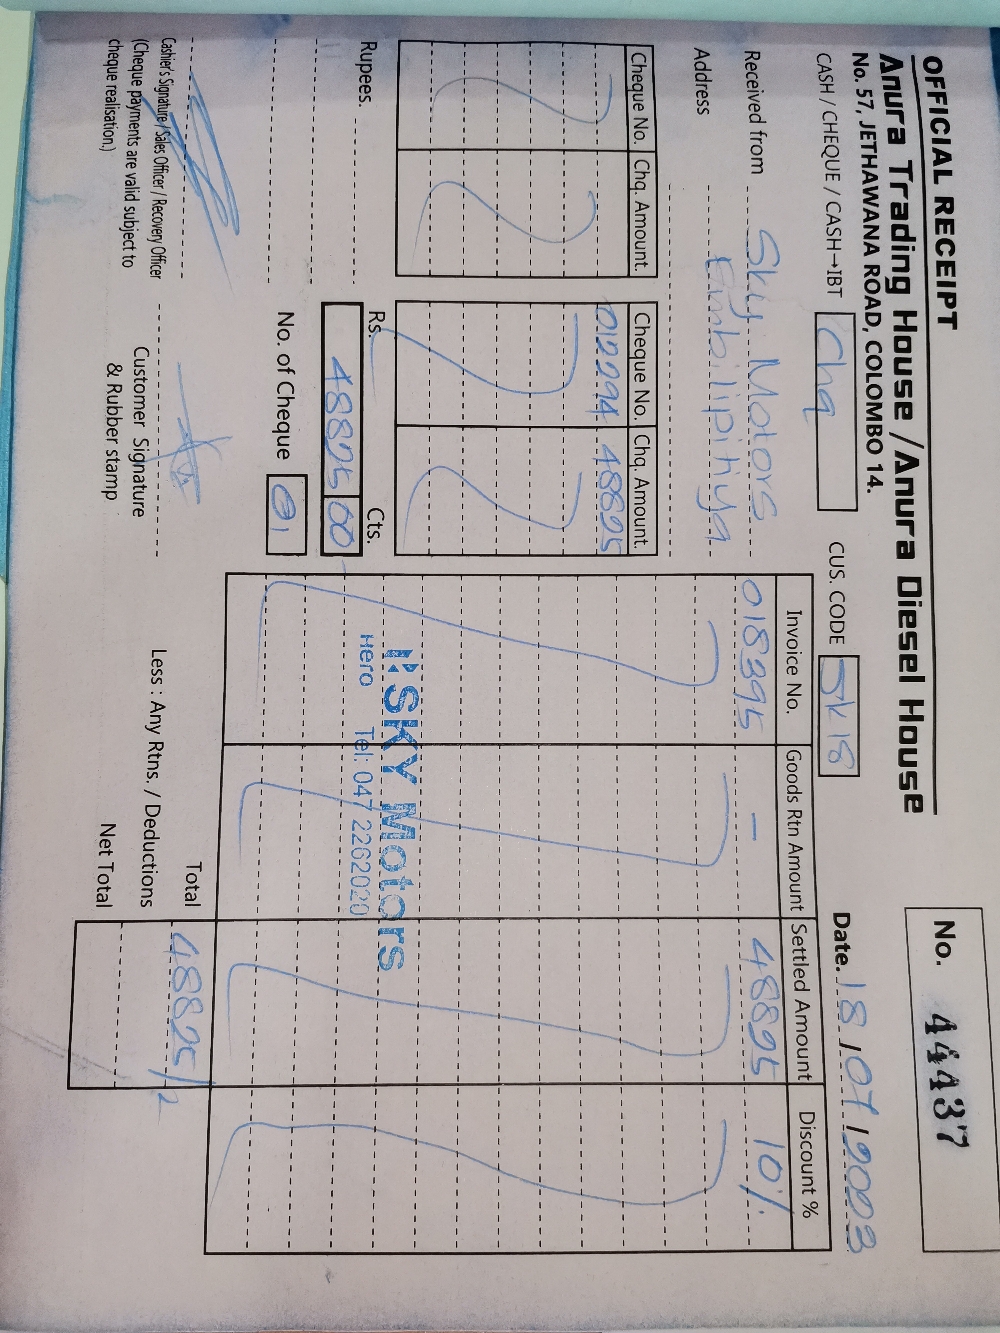 OFFICIAL RECEIPT
No. 44437
Anura Trading House / Anura Diesel House
No. 57, JETHAWANA ROAD, COLOMBO 14.
CASH / CHEQUE / CASH→IBT Chq CUS. CODE SK 18 Date. 18 / 07 / 2023
Received from Sky Motors
Address Embilipitiya
Cheque No. Chq. Amount. Cheque No. Chq. Amount.
012294 48895
Invoice No. Goods Rtn Amount Settled Amount Discount %
018395 — 48895 10%
Rupees. Rs. Cts.
48895 00
No. of Cheque 01
SKY Motors
Hero Tel: 047 2262020
Total 48895/=
Less : Any Rtns. / Deductions
Net Total
Cashier's Signature / Sales Officer / Recovery Officer
(Cheque payments are valid subject to
cheque realisation.)
Customer Signature
& Rubber stamp